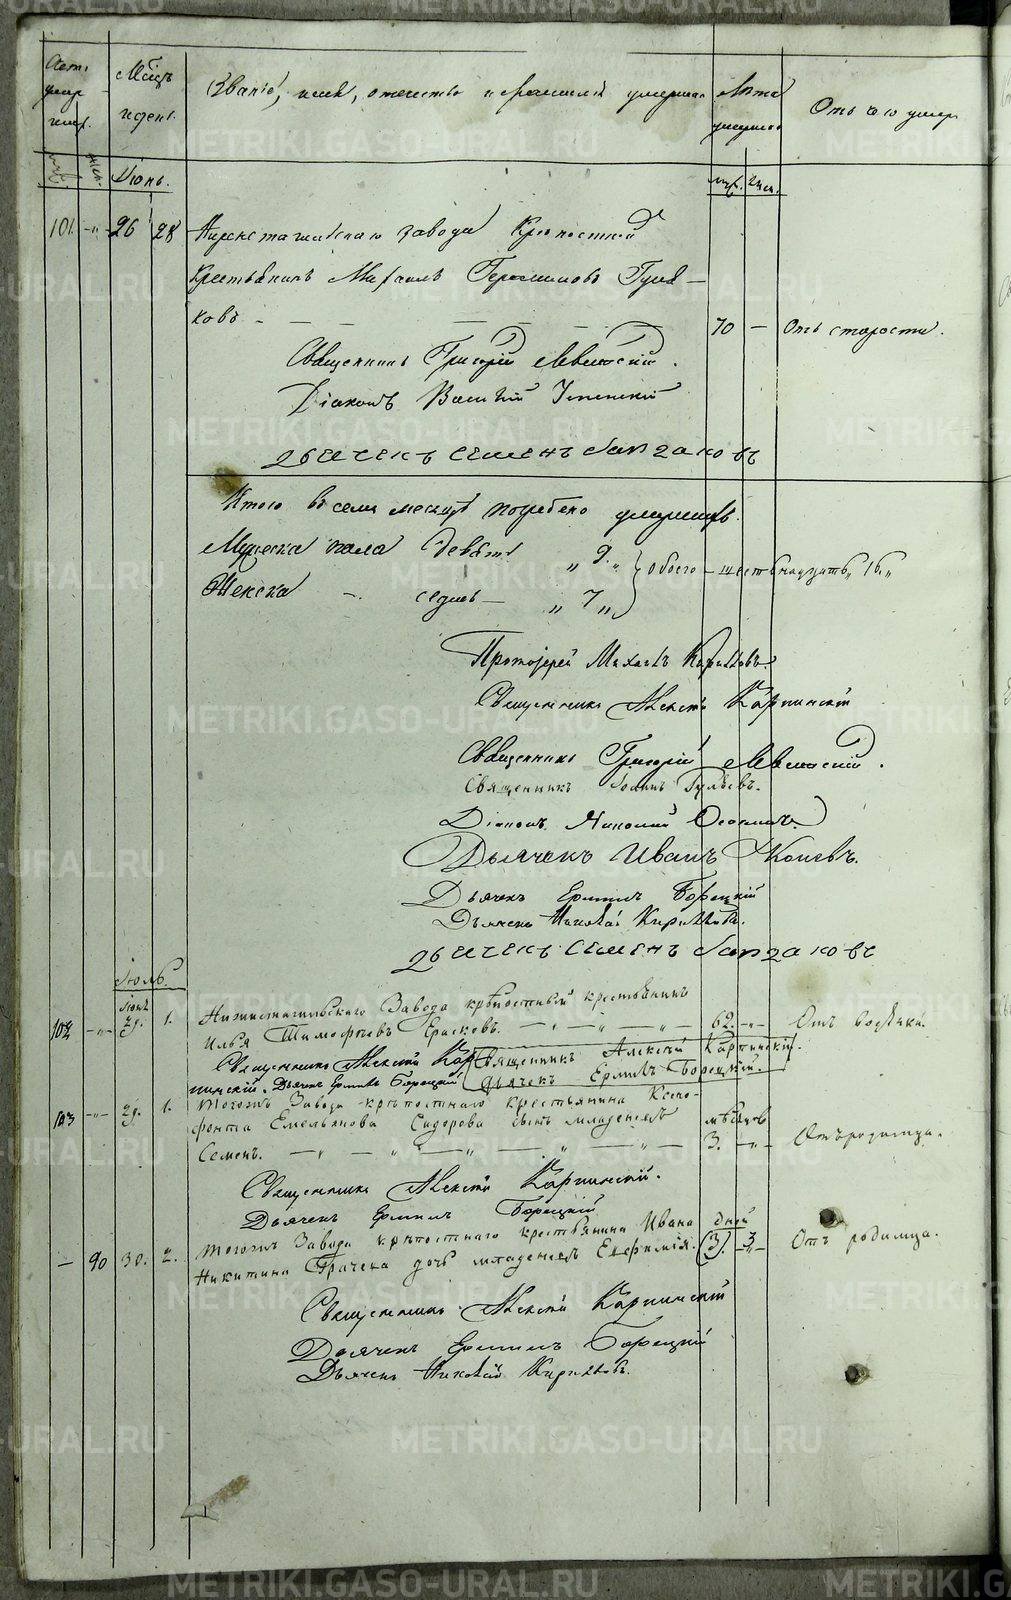 Счет умер. муж. жен.
Мѣсяцъ и день.
Званіе, имя, отчество и фамилія умершаго
Лѣта умершаго муж. жен.
Отъ чего умер.
Іюнь.
101. -„- 26 28 Нижнетагильскаго завода Крепостной
Крестьянинъ Михаилъ Герасимовъ
ковъ 70 — Отъ старости.
Священникъ Григорій Левитскій.
Діаконъ Василій Успенскій
Дьячекъ Семенъ
Итого въ семъ месяце погребено умершихъ.
Мужеска пола девять „9.„ обоего — шестьнадцать „16.„
Женска — седмь — „7„
Протоіерей Михаилъ Кирилловъ.
Священникъ Алексѣй Карпинскій
Священникъ Григорій Левитскій.
Священникъ Іоаннъ
Діаконъ Николай
Дьячекъ Иванъ Коневъ.
Дьячекъ Ермилъ Борецкій
Дьячекъ Николай Кирилловъ.
Дьячекъ Семенъ
Іюль.
Іюня
102 -„- 29. 1. Нижнетагильскаго Завода крѣпостный крестьянинъ
Илья Тимофѣевъ Ерасковъ. 62. -„- Отъ водянки.
Священникъ Алексѣй Кар Священникъ Алексѣй Карпинскій
пинскій. Дьячекъ Ермилъ Борецкій. Дьячекъ Ермилъ Борецкій.
103 -„- 29. 1. Тогожъ Завода крѣпостнаго крестьянина Ксено-
фонта Емельянова Сидорова сынъ младенецъ мѣсяцев
Семенъ. 3. -„- Отъ родимца.
Священникъ Алексѣй Карпинскій.
Дьячекъ Ермилъ Борецкій
— 90 30. 2. Тогожъ Завода крѣпостнаго крестьянина Ивана дней
Никитина Грачева дочь младенецъ Евфимія. (3). 3 Отъ родимца.
Священникъ Алексѣй Карпинскій
Дьячекъ Ермилъ Борецкій
Дьячекъ Николай Кирилловъ.
METRIKI.GASO-URAL.RU